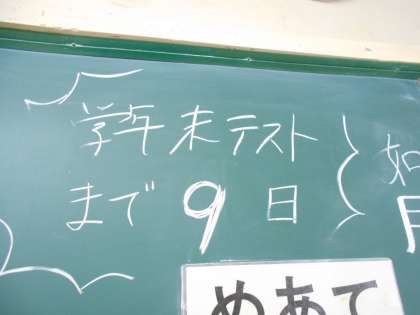 学年末テスト
まで9日
如月
めあて